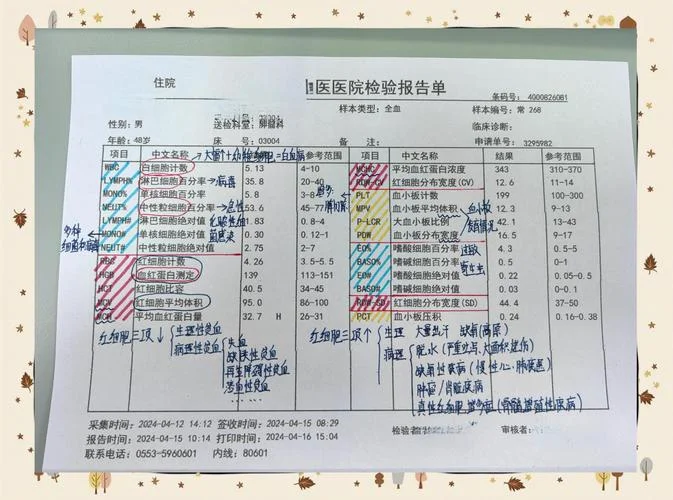 住院 医医院检验报告单
条码号: 4000826081
样本类型: 全血 样本编号: 常 268
性别: 男 送检科室: 肿瘤科 临床诊断:
年龄: 48岁 床 号: 03004 备 注: 申请单号: 3295982
项目 中文名称 参考范围 项目 中文名称 结果 参考范围
WBC 白细胞计数 5.13 4-10 MCHC 平均血红蛋白浓度 343 310-370
LYMPH% 淋巴细胞百分率 →病毒 35.8 20-40 RDW-CV 红细胞分布宽度(CV) 12.6 11-14
MONO% 单核细胞百分率 5.8 3-8 PLT 血小板计数 199 100-300
NEUT% 中性粒细胞百分率 53.6 45-77 MPV 血小板平均体积 12.3 9-13
LYMPH# 淋巴细胞绝对值 1.83 0.8-4 P-LCR 大血小板比例 42.1 13-43
MONO# 单核细胞绝对值 0.30 0.12-1 PDW 血小板分布宽度 16.5 9-17
NEUT# 中性粒细胞绝对值 2.75 2-7 EO% 嗜酸细胞百分率 4.3 0.5-5
RBC 红细胞计数 4.26 3.5-5.5 BASO% 嗜碱细胞百分率 0.7 0-1
HGB 血红蛋白测定 139 113-151 EO# 嗜酸细胞绝对值 0.22 0.05-0.5
HCT 红细胞比容 40.5 34-45 BASO# 嗜碱细胞绝对值 0.03 0-0.1
MCV 红细胞平均体积 95.0 86-100 RDW-SD 红细胞分布宽度(SD) 44.4 37-50
MCH 平均血红蛋白量 32.7 H 26-31 PCT 血小板压积 0.24 0.16-0.38
过敏
寄生虫
红细胞三项↓ 生理性贫血
病理性贫血 失血
缺铁性贫血
再生障碍性贫血
溶血性贫血
……
红细胞三项↑ 生理 大量出汗 缺氧(高原)
病理 脱水(严重吐泻、大面积烧伤)
缺氧性疾病(慢性心、肺疾患)
肿瘤/肾脏疾病
真性红细胞增多症(骨髓增殖性疾病)
采集时间: 2024-04-12 14:12 签收时间: 2024-04-15 08:29
报告时间: 2024-04-15 10:14 打印时间: 2024-04-16 15:04 检验者: 审核者:
联系电话: 0553-5960601 内线: 80601